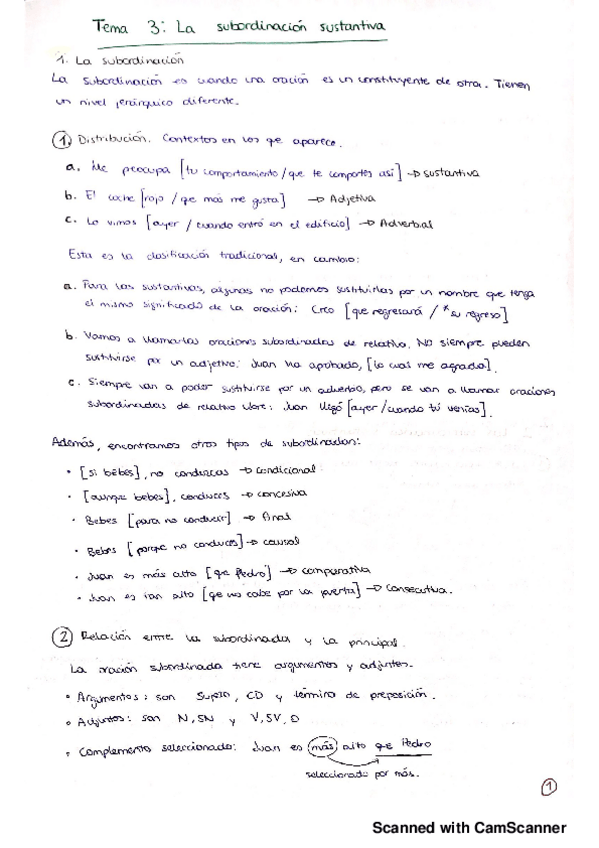 Tema 3: La subordinación sustantiva
1. La subordinación
La subordinación es cuando una oración es un constituyente de otra. Tienen
un nivel jerárquico diferente.
1. Distribución. Contextos en los que aparece.
a. Me preocupa [tu comportamiento / que te comportes así] → sustantiva
b. El coche [rojo / que más me gusta] → Adjetiva
c. Lo vimos [ayer / cuando entró en el edificio] → Adverbial
Esta es la clasificación tradicional, en cambio:
a. Para las sustantivas, algunas no podemos sustituirlas por un nombre que tenga
el mismo significado de la oración: Creo [que regresará / *su regreso]
b. Vamos a llamarlas oraciones subordinadas de relativo. No siempre pueden
sustituirse por un adjetivo: Juan ha aprobado, [lo cual me agrada].
c. Siempre van a poder sustituirse por un adverbio, pero se van a llamar oraciones
subordinadas de relativo libre: Juan llegó [ayer / cuando tú venías].
Además, encontramos otros tipos de subordinadas:
• [si bebes], no conduzcas → condicional
• [aunque bebes], conduces → concesiva
• Bebes [para no conducir] → final
• Bebes [porque no conduces] → causal
• Juan es más alto [que Pedro] → comparativa
• Juan es tan alto [que no cabe por la puerta] → consecutiva.
2 Relación entre la subordinada y la principal.
La oración subordinada tiene argumentos y adjuntos.
• Argumentos: son Sujeto, CD y término de preposición.
• Adjuntos: son N, SN y V, SV, O
• Complemento seleccionado: Juan es más alto que Pedro
seleccionado por más.
1
Scanned with CamScanner